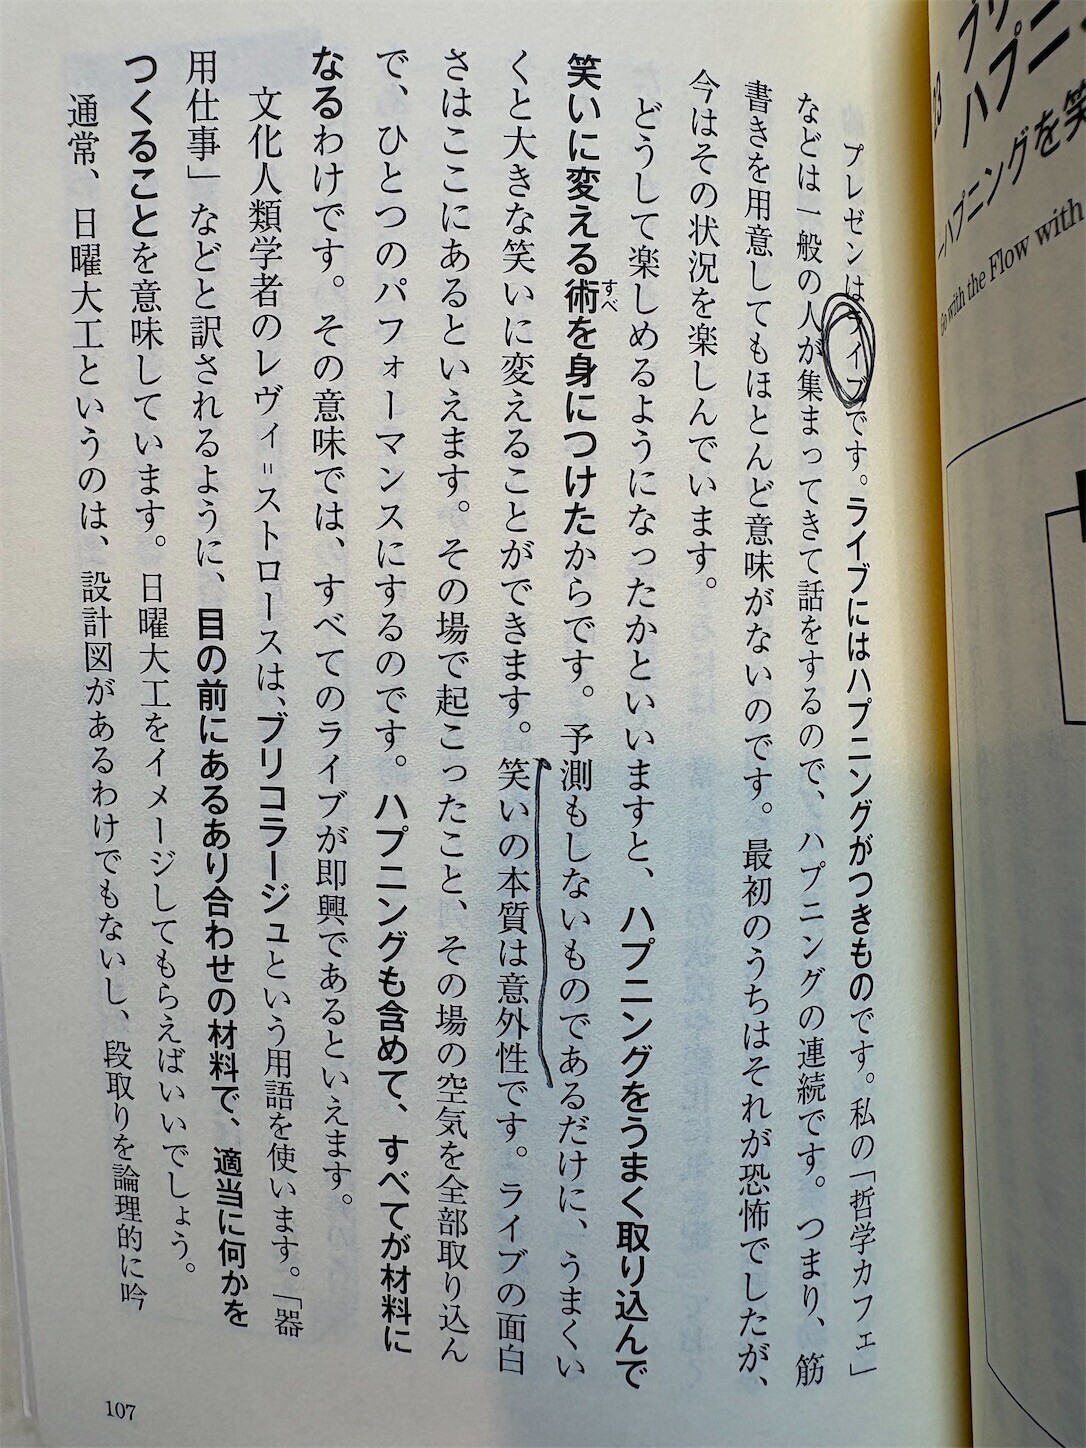 プレゼンはライブです。ライブにはハプニングがつきものです。私の「哲学カフェ」
などは一般の人が集まってきて話をするので、ハプニングの連続です。つまり、筋
書きを用意してもほとんど意味がないのです。最初のうちはそれが恐怖でしたが、
今はその状況を楽しんでいます。
どうして楽しめるようになったかといいますと、ハプニングをうまく取り込んで
笑いに変える術を身につけたからです。予測もしないものであるだけに、うまくい
すべ
くと大きな笑いに変えることができます。笑いの本質は意外性です。ライブの面白
さはここにあるといえます。その場で起こったこと、その場の空気を全部取り込ん
で、ひとつのパフォーマンスにするのです。ハプニングも含めて、すべてが材料に
なるわけです。その意味では、すべてのライブが即興であるといえます。
文化人類学者のレヴィ=ストロースは、ブリコラージュという用語を使います。「器
用仕事」などと訳されるように、目の前にあるあり合わせの材料で、適当に何かを
つくることを意味しています。日曜大工をイメージしてもらえばいいでしょう。
通常、日曜大工というのは、設計図があるわけでもないし、段取りを論理的に吟
107
23
ハプニン
ハプニングを笑
Go with the Flow with